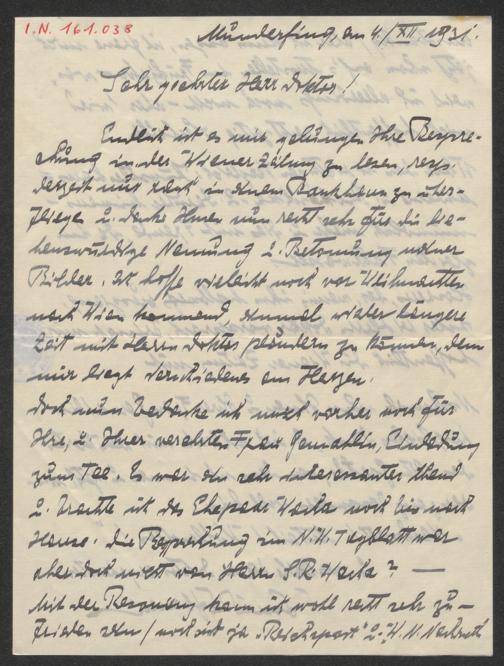 I.N. 161.038
Munderfing, am 4./XII. 1931.
Sehr geehrter Herr Doktor!
Endlich ist es mir gelungen Ihre Bespre-
chung in der Wiener Zeitung zu lesen, resp.
derzeit nur rasch in einem Bankhaus zu über-
fliegen u. danke Ihnen nun recht sehr für die lie-
benswürdige Nennung u. Betonung meiner
Bilder. Ich hoffe vielleicht noch vor Weihnachten
nach Wien kommend, einmal wieder längere
Zeit mit Herrn Doktor plaudern zu können, denn
mir liegt verschiedenes am Herzen.
Doch nun bedanke ich mich vorher noch für
Ihre, u. Ihrer verehrten Frau Gemahlin, Einladung
zum Tee. Es war ein sehr interessanter Abend
u. brachte ich das Ehepaar noch bis nach
Hause. Die Besprechung im N.W. Tagblatt war
aber doch nicht von Herrn ? —
Mit der Resonanz kann ich wohl recht sehr zu-
frieden sein / noch ist ja „Reichspost" u. W.N. Nachrich